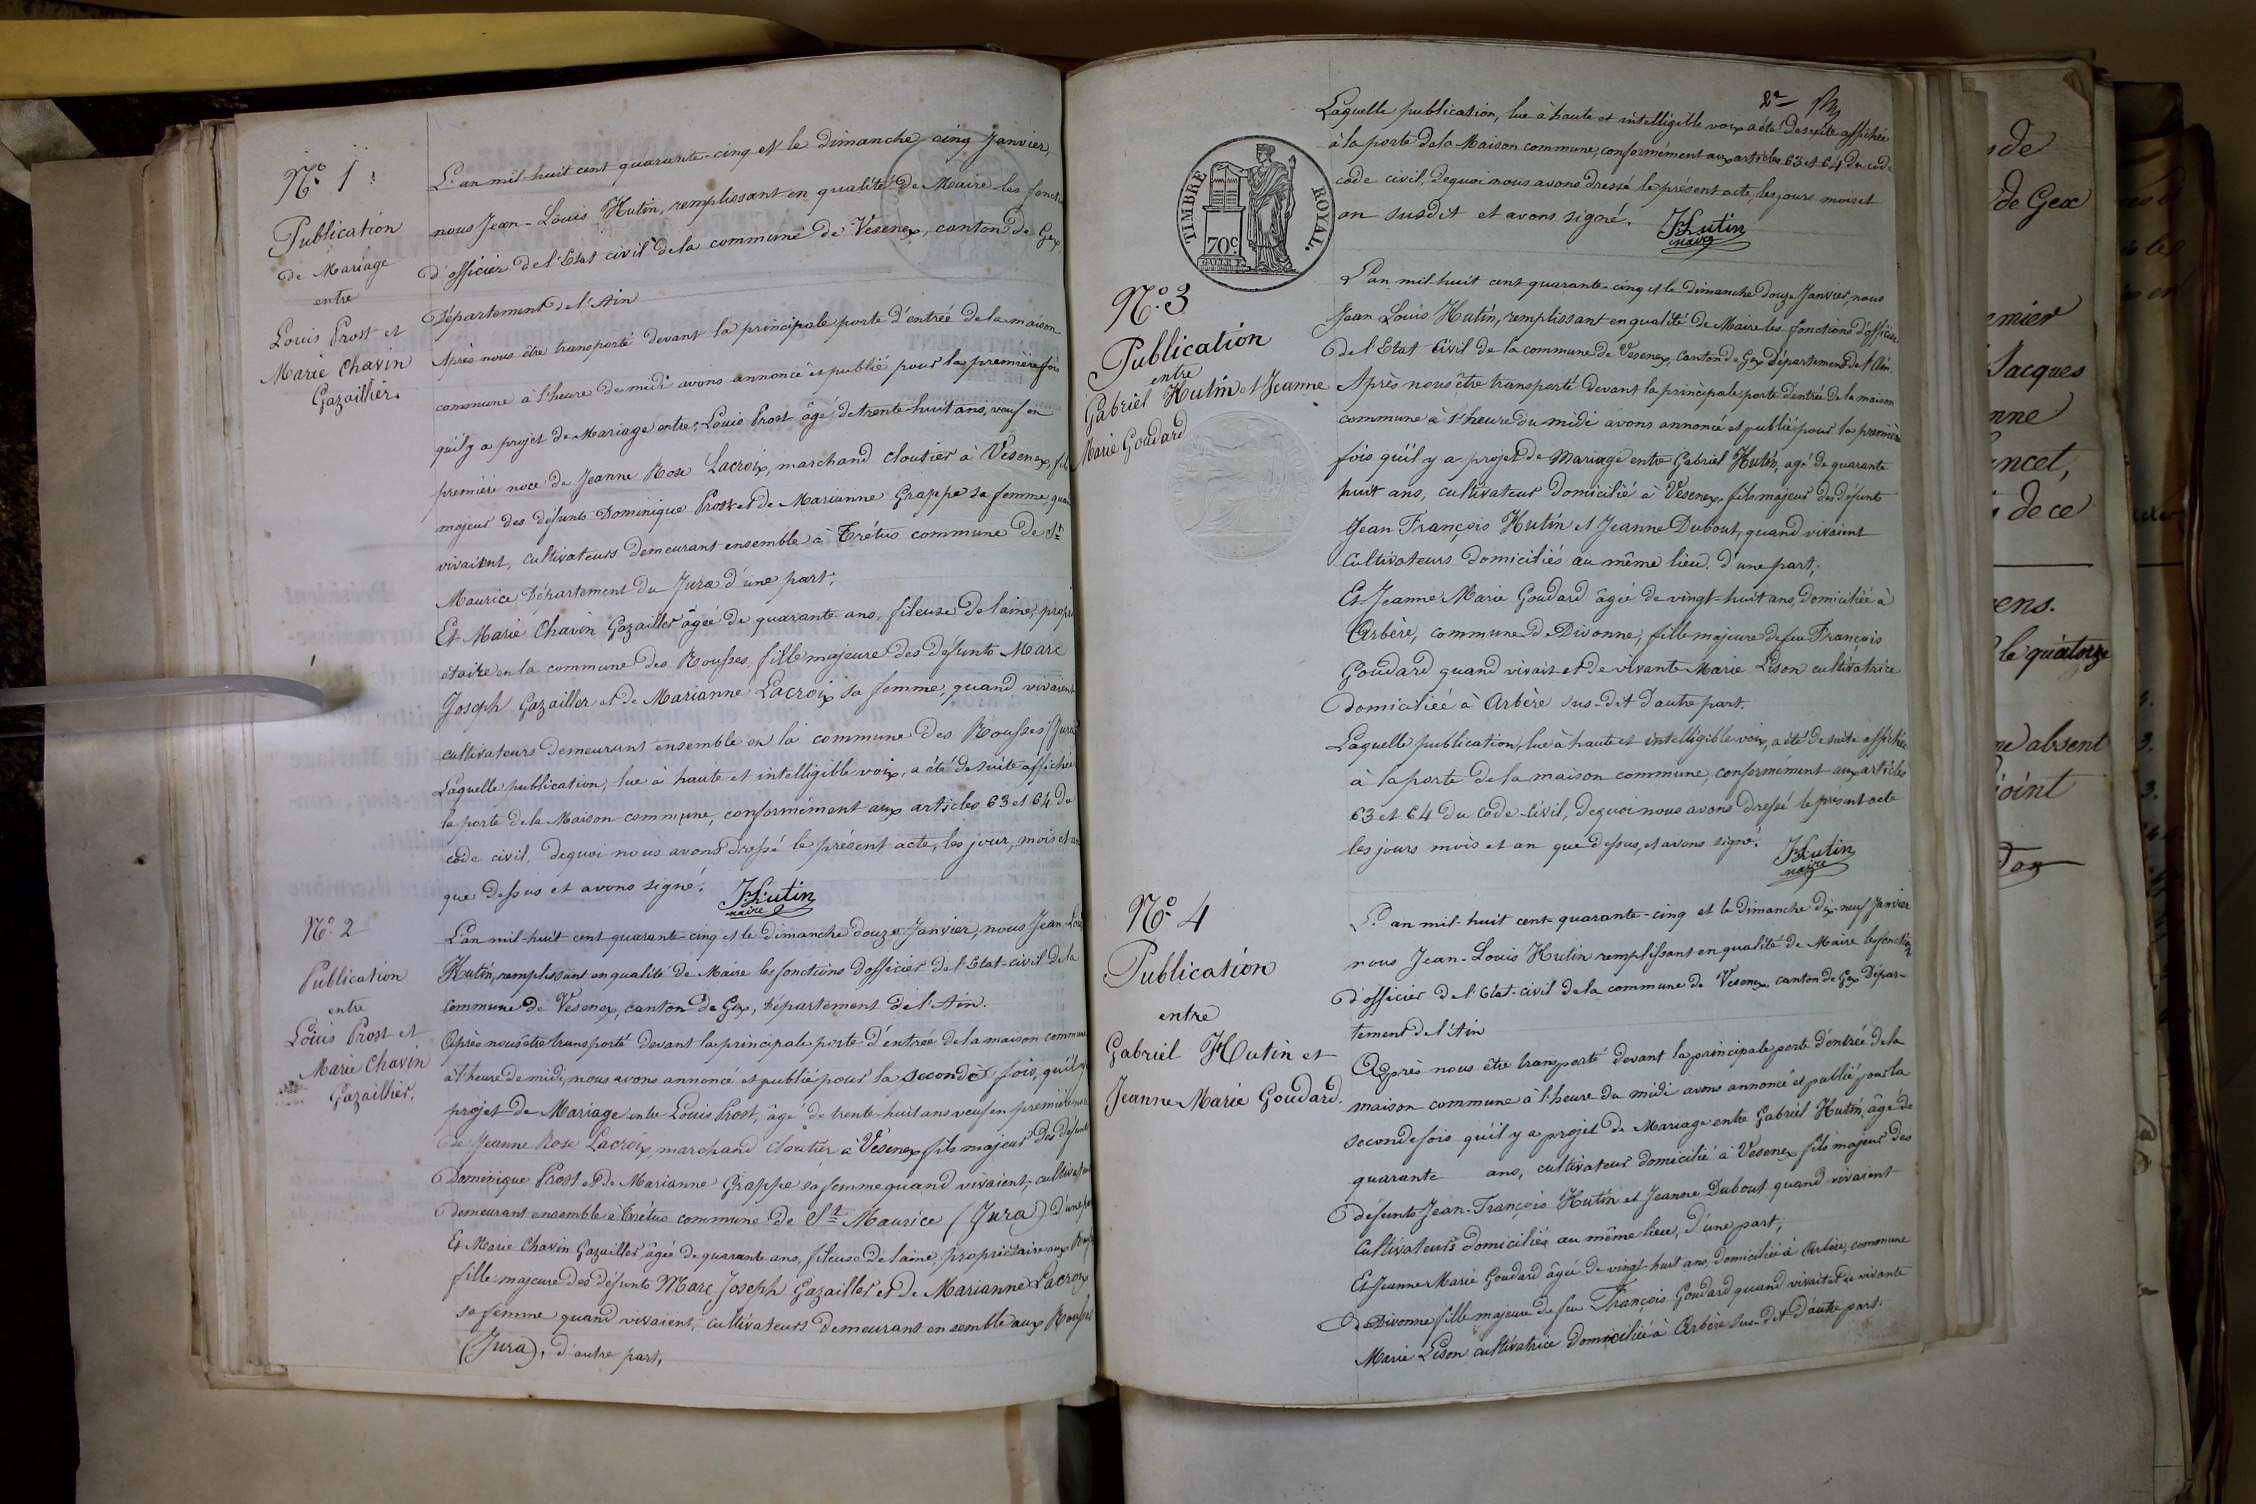 N° 1.
Publication
de Mariage
entre
Louis Prost et
Marie Chavin
Gazaillier.
L'an mil huit cent quarante-cinq et le dimanche cinq Janvier,
nous Jean-Louis Hutin, remplissant en qualité de Maire les fonct
d'officier de l'Etat civil de la commune de Vesenex, canton de Gex,
Département de l'Ain
Après nous être transporté devant la principale porte d'entrée de la maison
commune à l'heure de midi avons annoncé et publié pour la première fois
qu'il y a projet de Mariage entre Louis Prost âgé de trente-huit ans, veuf en
première noce de Jeanne Rose Lacroix, marchand cloutier à Vesenex, fils
majeur des défunts Dominique Prost et de Marianne Grappe sa femme, quand
vivaient, cultivateurs demeurant ensemble à Trétus commune de St
Maurice, Département du Jura d'une part;
Et Marie Chavin Gazailler âgée de quarante ans, fileuse de laine, propri
étaire en la commune des Rousses, fille majeure des défunts Marc
Joseph Gazailler et de Marianne Lacroix sa femme, quand vivaient
cultivateurs demeurant ensemble en la commune des Rousses (Jura
Laquelle publication, lue à haute et intelligible voix, a été de suite affichée
la porte de la Maison commune, conformément aux articles 63 et 64 du
code civil, dequoi nous avons dressé le présent acte, les jour, mois et an
que dessus et avons signé.
JLutin
maire
N° 2
Publication
entre
Louis Prost et
Marie Chavin
Gazaillier.
L'an mil-huit-cent-quarante-cinq et le dimanche douze Janvier, nous Jean-Lou
Hutin, remplissant en qualité de Maire les fonctions d'officier de l'Etat-civil de la
commune de Vesenex, canton de Gex, Département de l'Ain.
Après nous être transporté devant la principale porte d'entrée de la maison commune
à l'heure de midi, nous avons annoncé et publié pour la seconde fois, qu'il y a
projet de Mariage entre Louis Prost, âgé de trente-huit ans veuf en première noce
de Jeanne Rose Lacroix, marchand cloutier à Vésenex fils majeur des défunts
Dominique Prost et de Marianne Grappe sa femme quand vivaient, cultivateurs
demeurant ensemble à Trétus commune de St Maurice (Jura) d'une part
Et Marie Chavin Gazailler âgée de quarante ans, fileuse de laine, propriétaire aux Rousses
fille majeure des défunts Marc Joseph Gazailler et de Marianne Lacroix
sa femme quand vivaient, cultivateurs demeurant ensemble aux Rousses
(Jura), d'autre part,
2e
Laquelle publication, lue à haute et intelligible voix a été de suite affichée
à la porte de la Maison commune, conformément aux articles 63 et 64 du code
code civil, dequoi nous avons dressé le présent acte, les jours mois et
an susdit et avons signé.
JLutin
maire
TIMBRE ROYAL.
70c
N° 3
Publication
entre
Gabriel Hutin et Jeanne
Marie Goudard
L'an mil-huit cent-quarante-cinq et le dimanche douze Janvier, nous
Jean Louis Hutin, remplissant en qualité de Maire les fonctions d'officier
de l'Etat Civil de la commune de Vesenex, canton de Gex Département de l'Ain.
Après nous être transporté devant la principale porte d'entrée de la maison
commune à l'heure du midi avons annoncé et publié pour la première
fois qu'il y a projet de Mariage entre Gabriel Hutin, agé de quarante
huit ans, cultivateur domicilié à Vesenex, fils majeur des défunts
Jean François Hutin et Jeanne Dubout, quand vivaient
cultivateurs domiciliés au même lieu, d'une part;
Et Jeanne Marie Goudard âgée de vingt-huit ans, domiciliée à
Arbère, commune de Divonne, fille majeure de feu François
Goudard quand vivait et de vivante Marie Lison cultivatrice
domiciliéé à Arbère sus-dit d'autre part.
Laquelle publication, lue à haute et intelligible voix, a été de suite affichée
à la porte de la maison commune, conformément aux articles
63 et 64 du Code-Civil, dequoi nous avons dressé le présent acte
les jours mois et an que dessus, et avons signé.
JLutin
maire
N° 4
Publication
entre
Gabriel Hutin et
Jeanne Marie Goudard.
L'an mil-huit cent-quarante-cinq et le dimanche dix-neuf Janvier
nous Jean-Louis Hutin remplissant en qualité de Maire les fonctions
d'officier de l'Etat-civil de la commune de Vesenex, canton de Gex Dépar-
tement de l'Ain
Après nous être transporté devant la principale porte d'entrée de la
maison commune à l'heure du midi avons annoncé et publié pour la
seconde fois qu'il y a projet de Mariage entre Gabriel Hutin, âge de
quarante ans, cultivateur domicilié à Vesenex fils majeur des
défunts Jean-François Hutin et Jeanne Dubout quand vivaient
Cultivateurs domiciliés au même lieu, d'une part;
Et Jeanne Marie Goudard âgée de vingt-huit ans, domiciliée à Arbère, commune
de Divonne fille majeure de feu François Goudard quand vivait et de vivante
Marie Lison cultivatrice domiciliée à Arbère sus-dit d'autre part.
de
de Gex
emier
Jacques
nne
ncet,
de ce
ens.
le quatorze
absent
joint